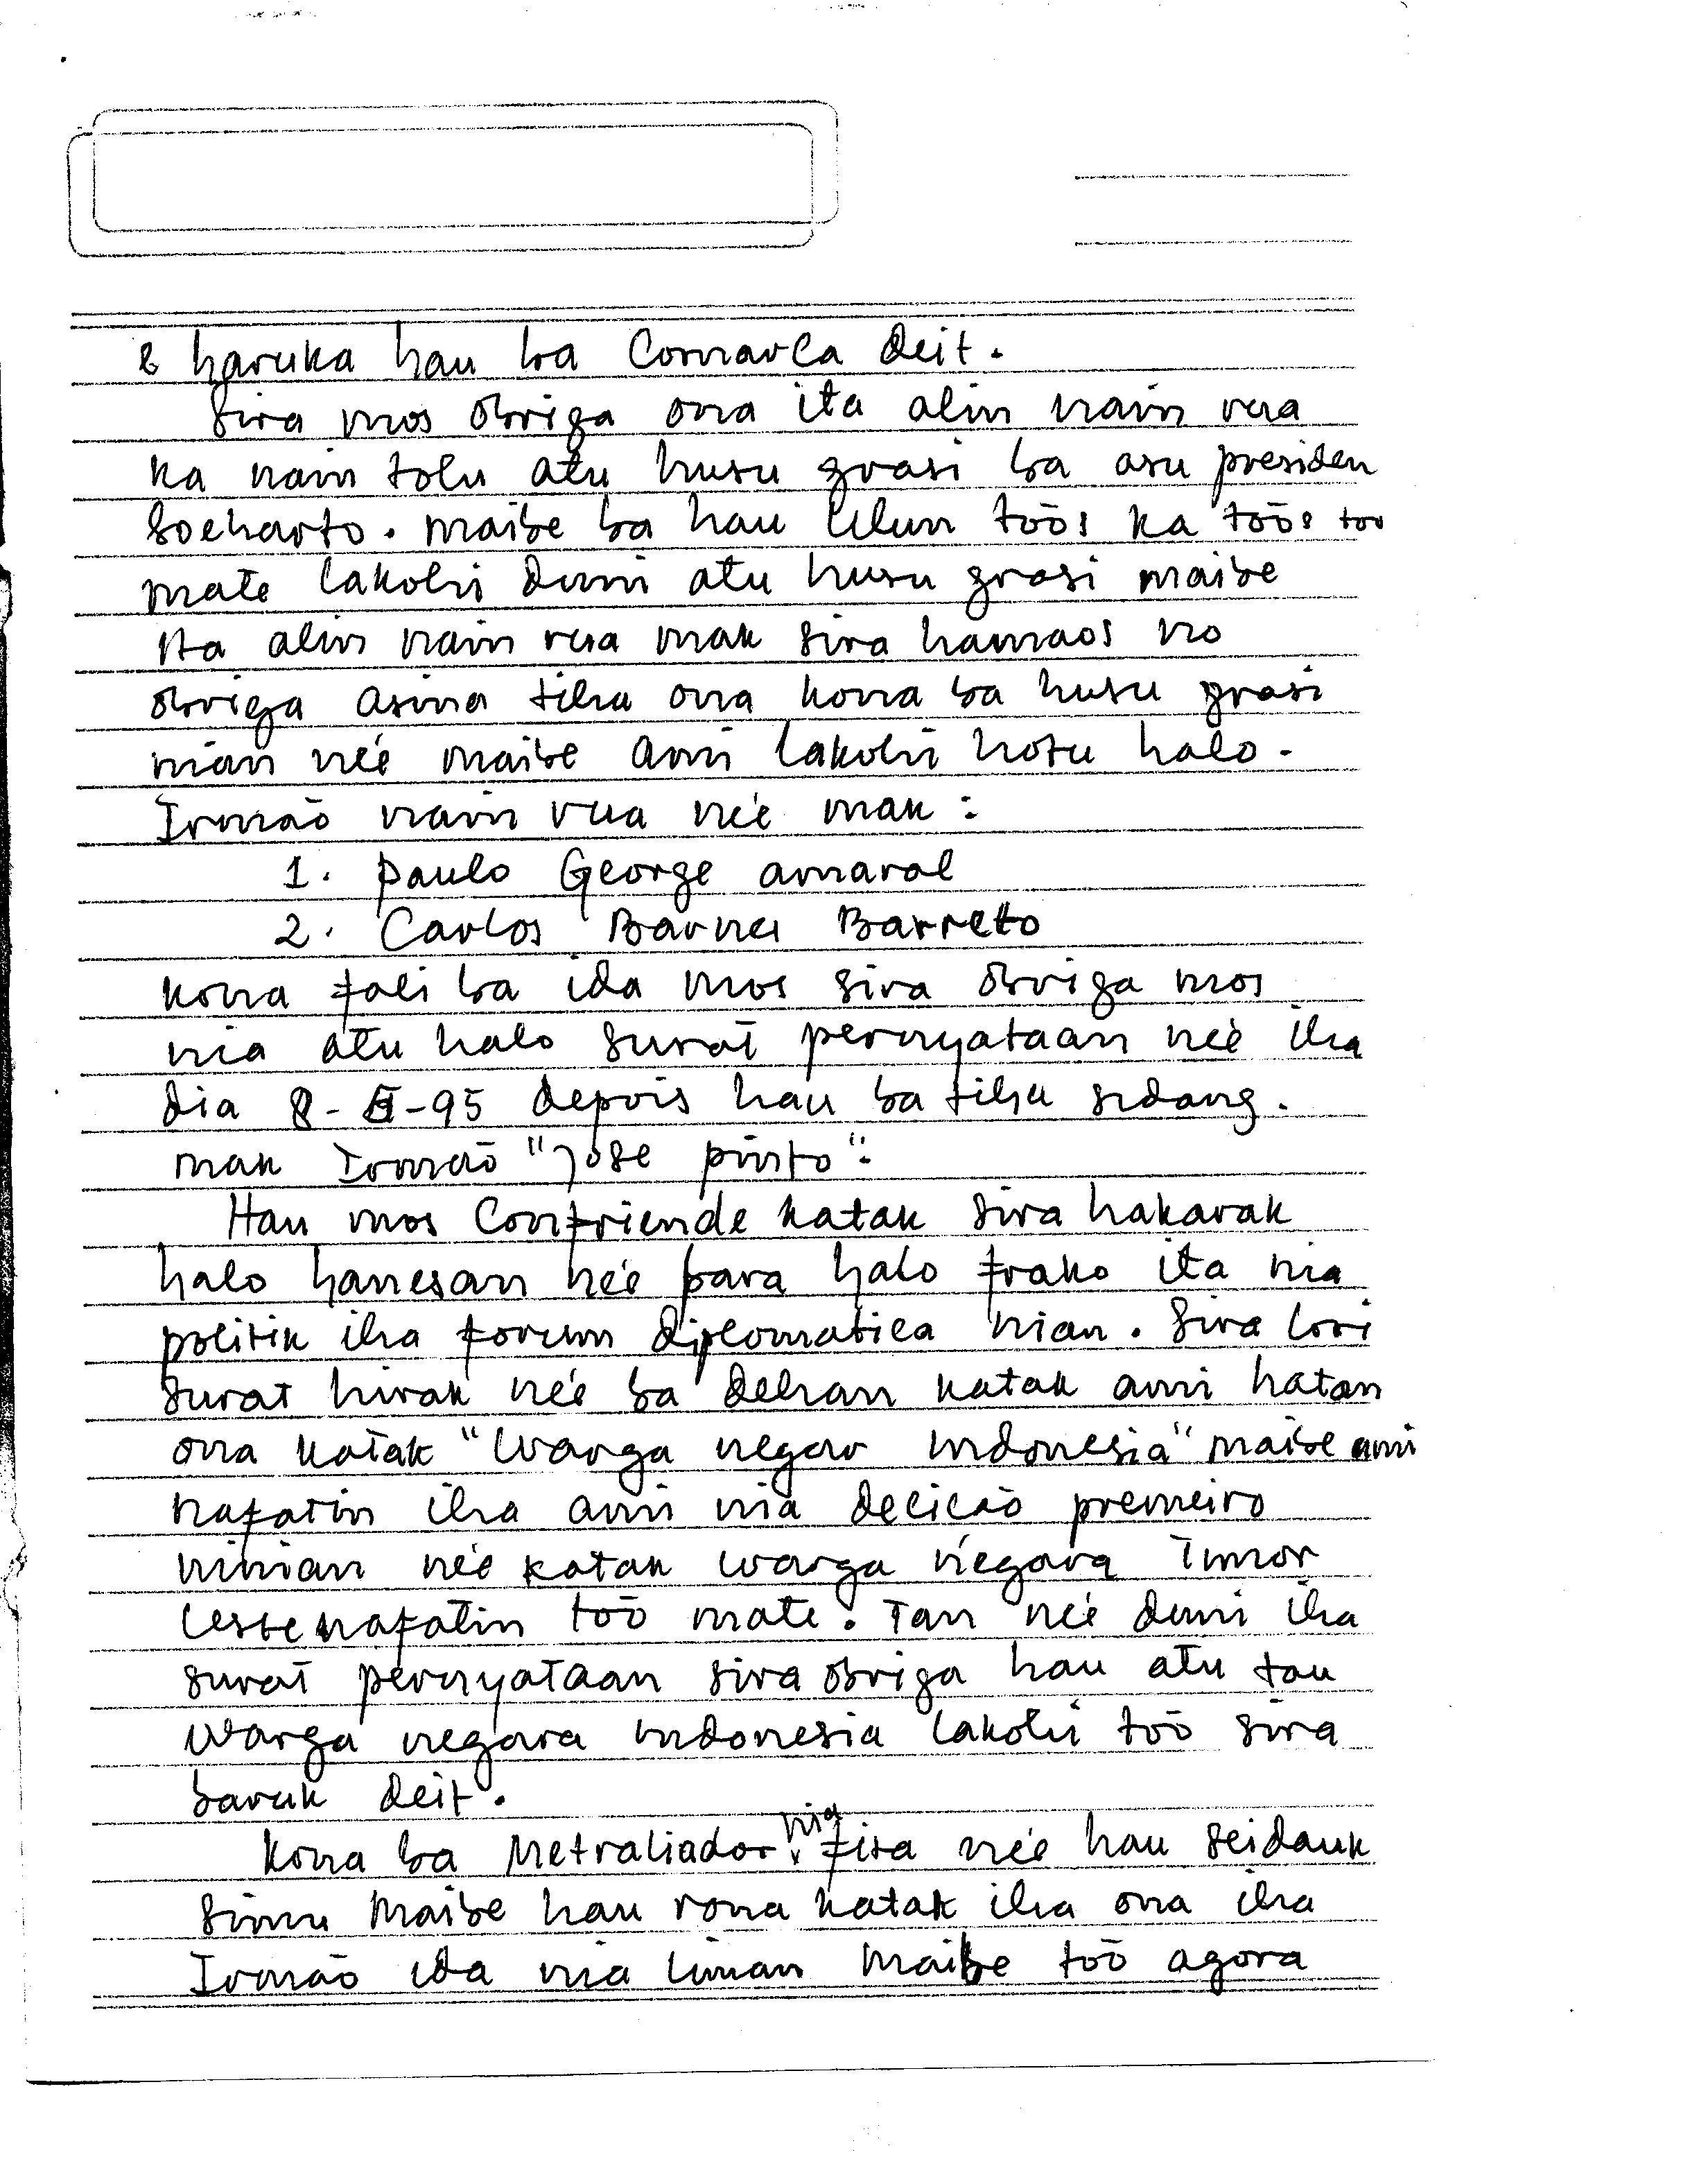 e haruka hau ba Comarca deit.
Sira mos obriga ona ita alin nain rua
ka nain tolu atu husu grasi ba asu presiden
Soeharto. maibe ba hau Ulun toõs ka toõs too
mate lakohi duni atu husu grasi maibe
Ita alin nain rua mak sira hamaos no
obriga asina tiha ona kona ba husu grasi
nian neé maibe ami lakohi hotu halo.
Irmaõ nain rua neé mak :
1. Paulo George amaral
2. Carlos Barros Barreto
kona fali ba ida mos sira obriga mos
nia atu halo surat pernyataan neé iha
dia 8- -95 depois hau ba tiha sidang.
mak Irmaõ "Jose pinto".
Hau mos Comfriende katak sira hakarak
halo hanesan neé para halo frako ita nia
politik iha forum diplomatica nian. Sira lori
surat hirak neé ba dehan katak ami hatan
ona katak "Warga negar Indonesia" maibe ami
nafatin iha ami nia decicão premeiro
ninian neé katak warga negara Timor
Leste nafatin toõ mate. Tan neé duni iha
surat pernyataan sira obriga hau atu tau
Warga negara Indonesia lakohi toõ sira
baruk deit.
Kona ba Metraliador nia fita neé hau seidauk
simu maibe hau rona katak iha ona iha
Irmaõ ida nia liman maibe toõ agora